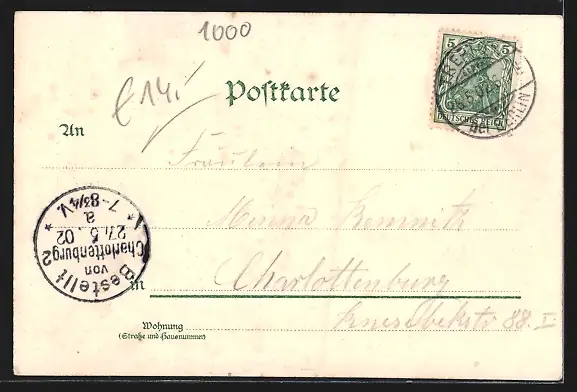 1000
Postkarte
An
Fräulein
Minna Kemnitz
in Charlottenburg
Knesebeckstr 88. I
Wohnung
(Straße und Hausnummer)
5 5
DEUTSCHES REICH
5.02
bei BERLIN
Bestellt
von
Charlottenburg 2
27/5.02
a
* 7-8¾V. *